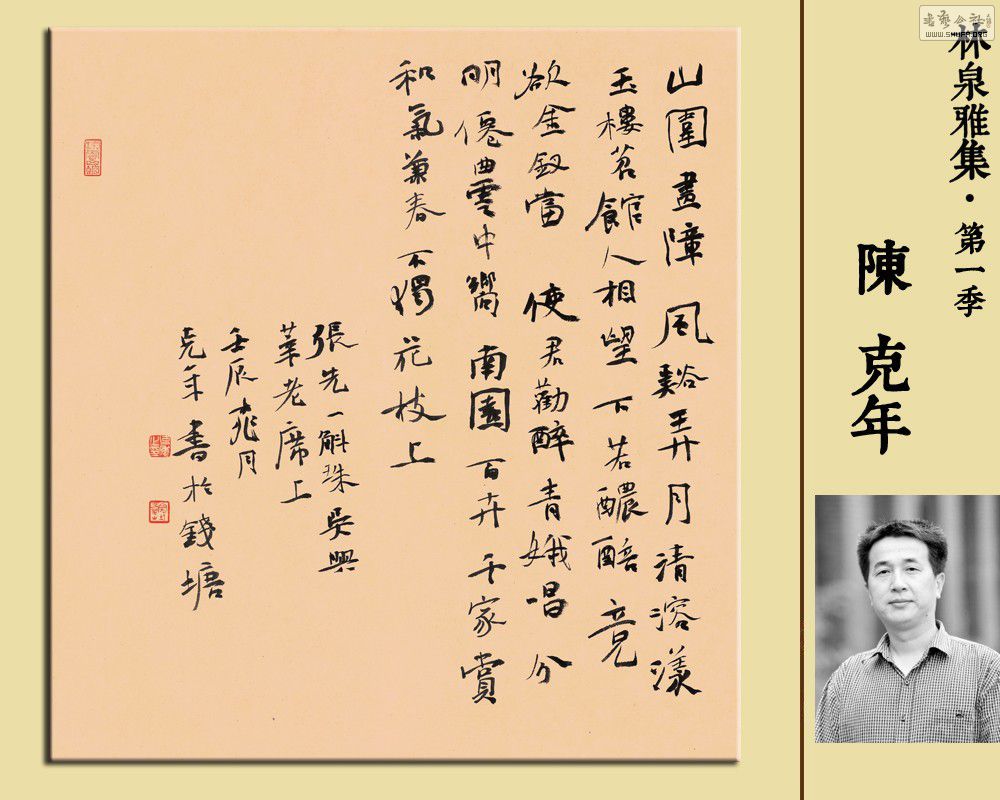 山園畫障風谿弄月清溶漾
玉樓苕館人相望下若醲醅竟
欲金釵當使君勸醉青娥唱分
明僊曲雲中嚮南園百卉千家賞
和氣兼春不獨花枝上
張先一斛珠吳興
莘老席上
壬辰桃月
克年書於錢塘
林泉雅集·第一季
陳克年
WWW.SHUFA.ORG